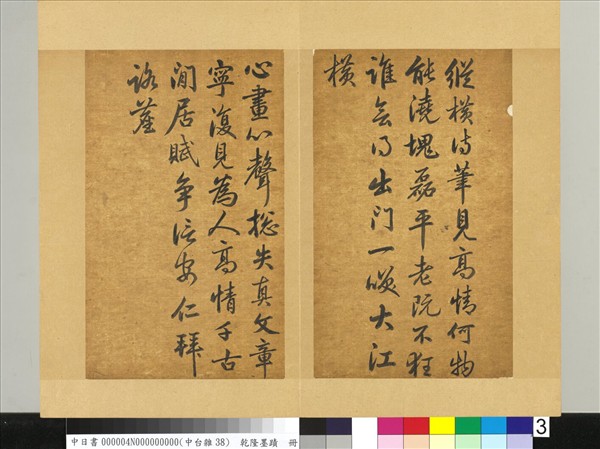 縱橫詩筆見高情何物
能澆塊磊平老阮不狂
誰會得出門一笑大江
橫
心畫心聲總失真文章
寧復見為人高情千古
閒居賦爭信安仁拜
路塵
中日書 000004N000000000(中台雜 38) 乾隆墨蹟 冊
3